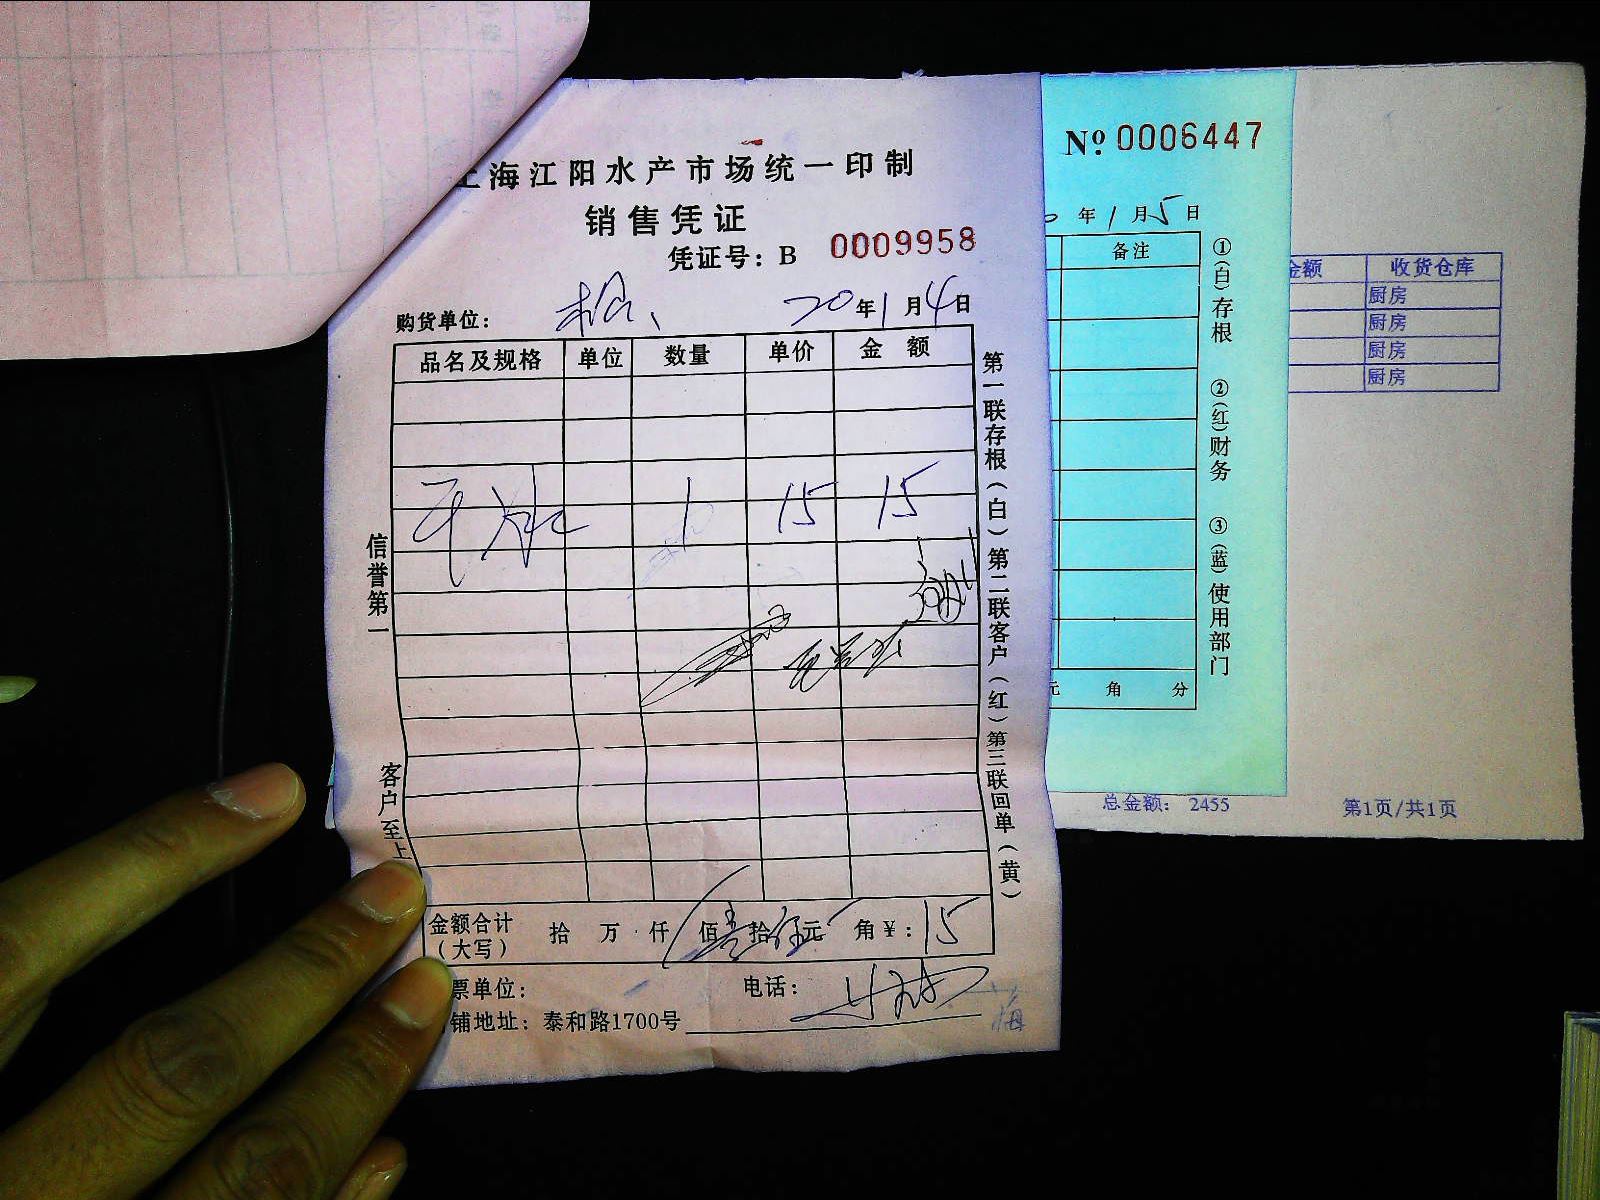 海江阳水产市场统一印制
销售凭证
凭证号：B 0009958
购货单位： 20年1月4日
品名及规格 单位 数量 单价 金额
1 15 15
信誉第一
客户至上
第一联存根（白）第二联客户（红）第三联回单（黄）
金额合计（大写） 拾 万 仟 佰 壹拾伍元 角￥：15
票单位： 电话：
铺地址：泰和路1700号
№ 0006447
年1月5日
备注
①（白）存根 ②（红）财务 ③（蓝）使用部门
元 角 分
金额 收货仓库
厨房
厨房
厨房
厨房
总金额： 2455 第1页/共1页